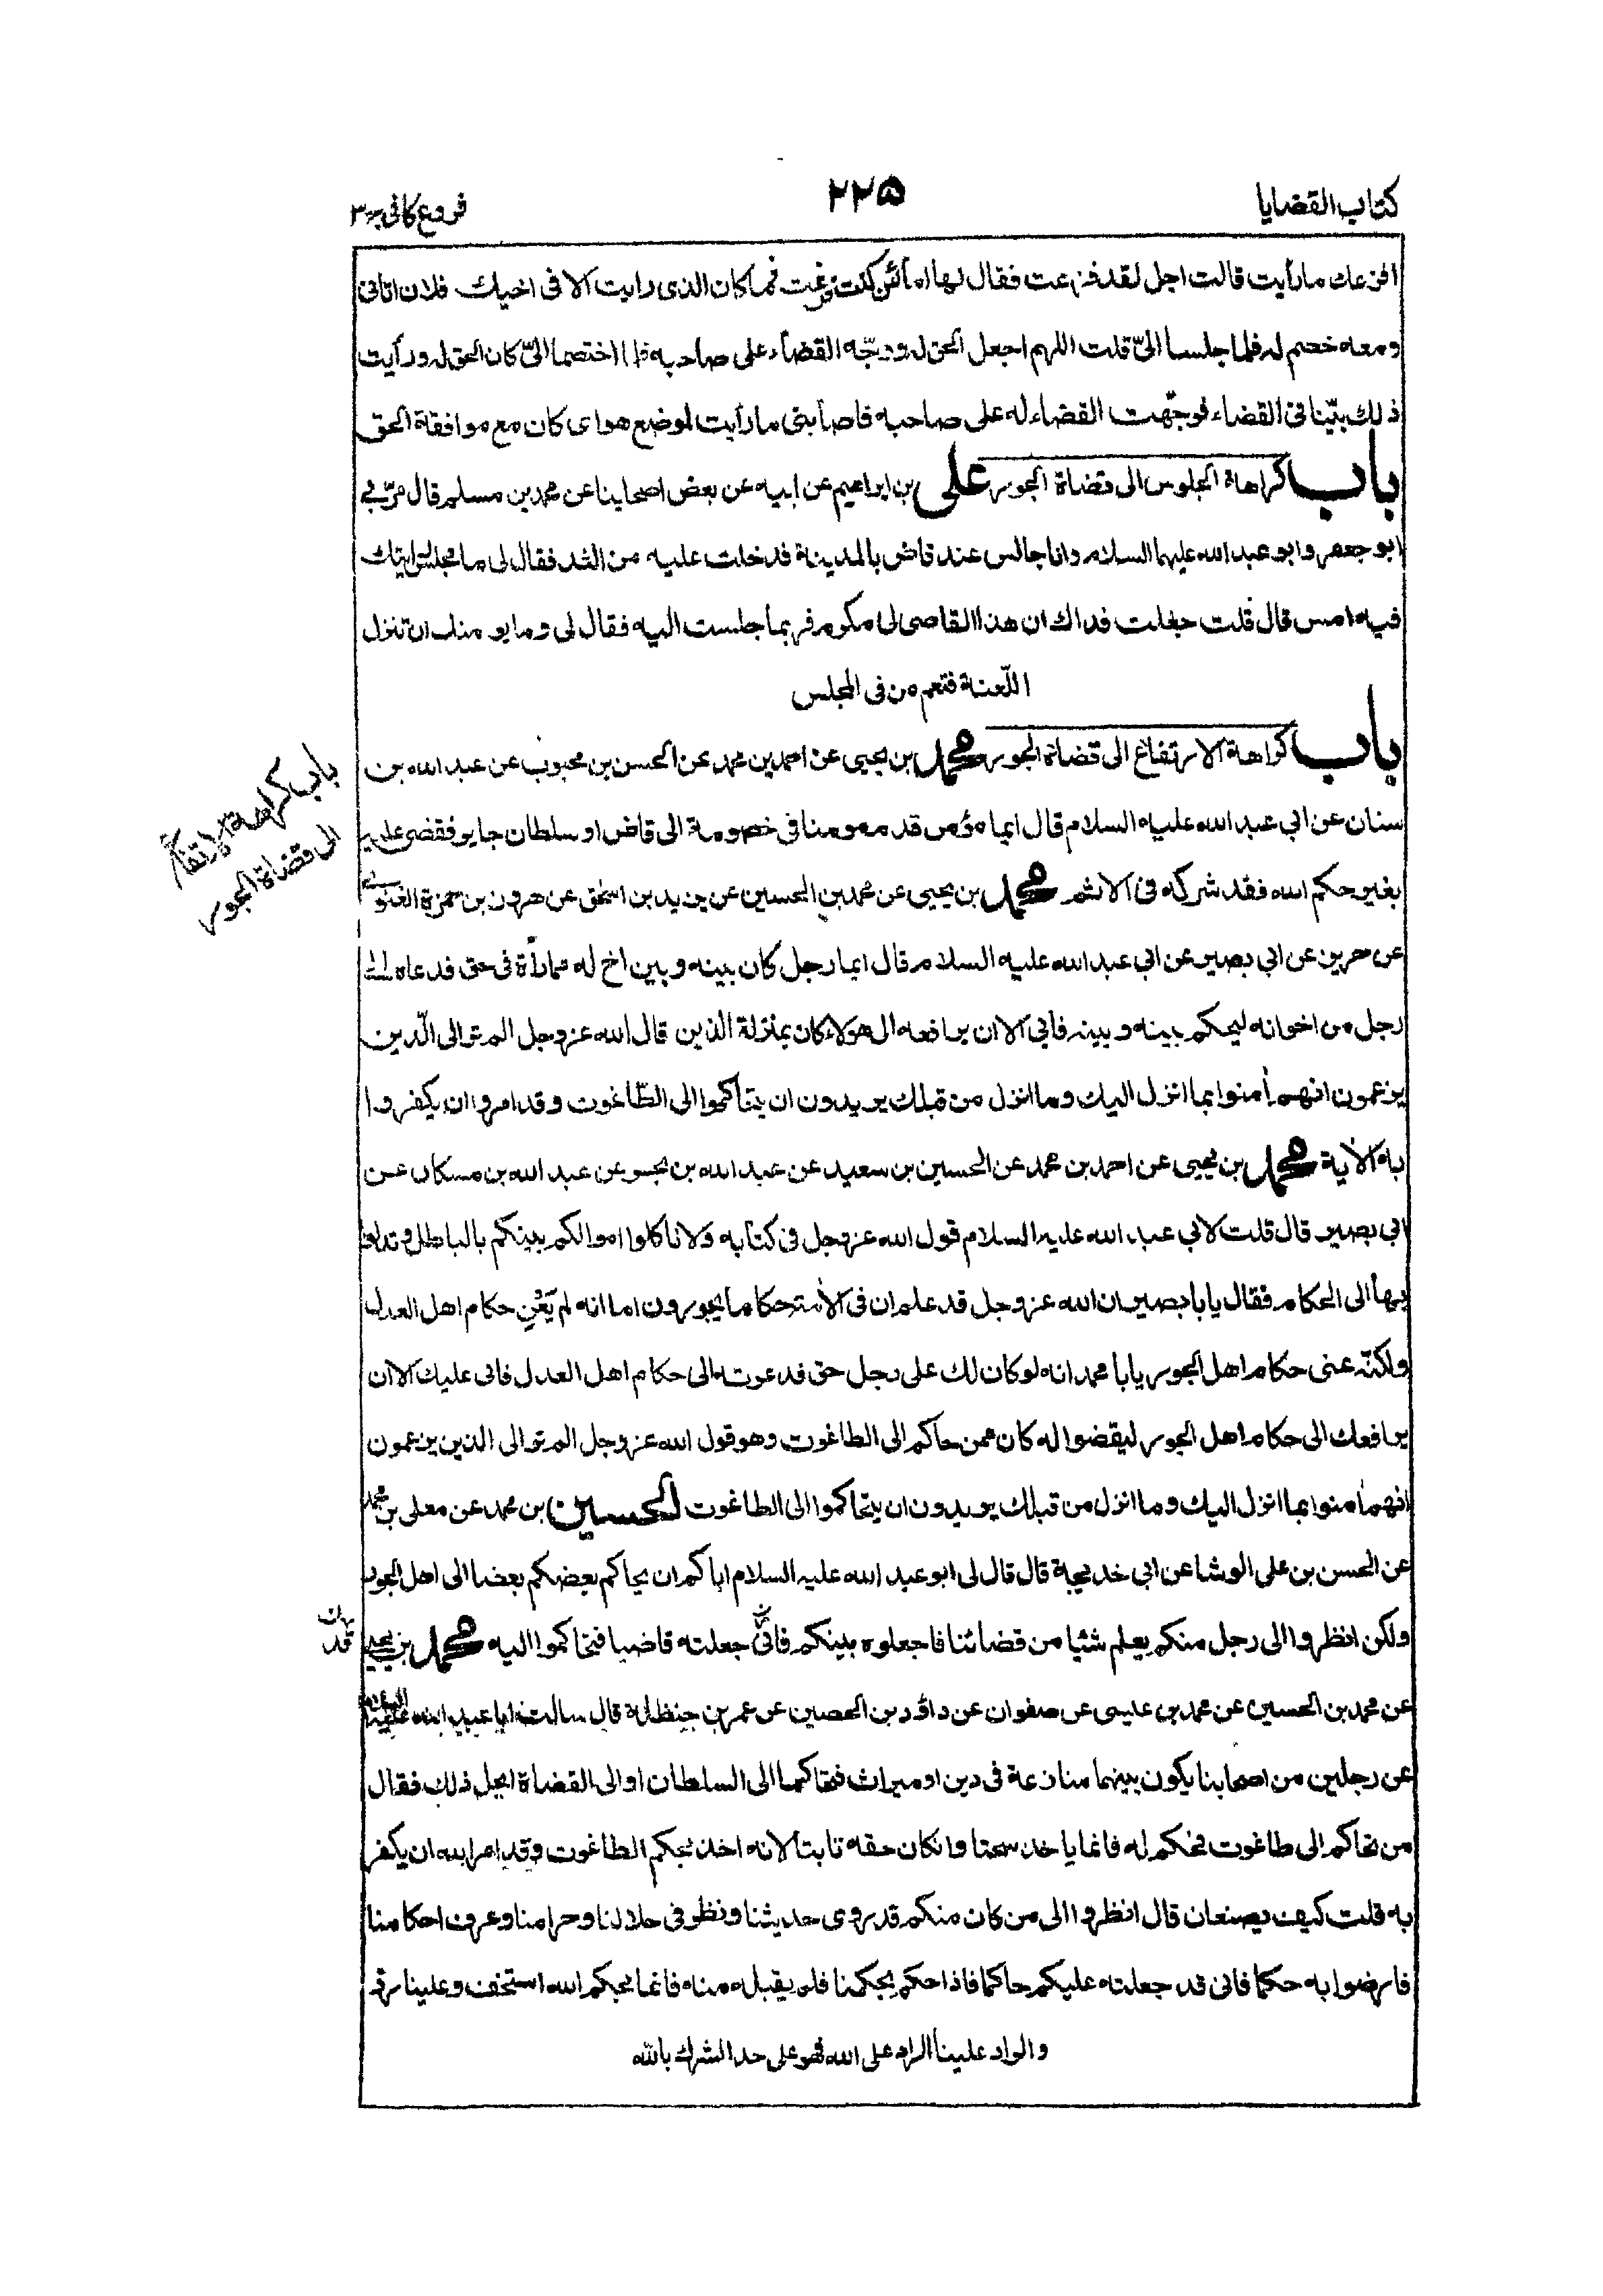 كتاب القضايا
٢٢٥
فروع كافى ج ٣
افزعك ما رأيت قالت اجل لقد فزعت فقال لها اما لئن كنت فزعت فما كان الذى رايت الا فى اخيك فلان اتانى
ومعه خصم له فلما جلسا الىّ قلت اللهم اجعل الحق له ووجّه القضاء على صاحبه فلما اختصما الىّ كان الحق له ورأيت
ذلك بيّنا فى القضاء فوجّهت القضاء له على صاحبه فاصابنى ما رأيت لموضع هواى كان مع موافقة الحق
باب كراهة الجلوس الى قضاة الجور على بن ابراهيم عن ابيه عن بعض اصحابنا عن محمد بن مسلم قال مرّ بى
ابو جعفر وابو عبد الله عليهما السلام وانا جالس عند قاض بالمدينة فدخلت عليه من الغد فقال لى ما مجلس رايتك
فيه امس قال قلت جعلت فداك ان هذا القاضى لى مكرم فربما جلست اليه فقال لى وما يومنك ان تنزل
اللّعنة فتعم من فى المجلس
باب كراهة الارتفاع الى قضاة الجور محمد بن يحيى عن احمد بن محمد عن الحسن بن محبوب عن عبد الله بن
سنان عن ابي عبد الله عليه السلام قال ايما مؤمن قدم مومنا فى خصومة الى قاض او سلطان جاير فقضى عليه
بغير حكم الله فقد شركه فى الاثم محمد بن يحيى عن محمد بن الحسين عن يزيد بن اسحق عن هرون بن حمزة الغنوى
عن حريز عن ابي بصير عن ابي عبد الله عليه السلام قال ايما رجل كان بينه وبين اخ له مماراة فى حق فدعاه الى
رجل من اخوانه ليحكم بينه وبينه فابي الا ان يرافعه الى هولاء كان بمنزلة الذين قال الله عز وجل الم تر الى الّذين
يزعمون انهم أمنوا بما انزل اليك وما انزل من قبلك يريدون ان يتحاكموا الى الطّاغوت وقد امروا ان يكفروا
به الأية محمد بن يحيى عن احمد بن محمد عن الحسين بن سعيد عن عبد الله بن بحر عن عبد الله بن مسكان عن
ابي بصير قال قلت لابي عبد الله عليه السلام قول الله عز وجل فى كتابه ولا تاكلوا اموالكم بينكم بالباطل وتدلوا
بها الى الحكام فقال يا با بصير ان الله عز وجل قد علم ان فى الامة حكاما يجورون اما انه لم يَعْنِ حكام اهل العدل
ولكنّه عنى حكام اهل الجور يا با محمد انه لو كان لك على رجل حق فدعوته الى حكام اهل العدل فابى عليك الا ان
يرافعك الى حكام اهل الجور ليقضوا له كان ممن حاكم الى الطاغوت وهو قول الله عز وجل الم تر الى الذين يزعمون
انهم أمنوا بما انزل اليك وما انزل من قبلك يريدون ان يتحاكموا الى الطاغوت الحسين بن محمد عن معلى بن محمد
عن الحسن بن على الوشا عن ابي خديجة قال قال لى ابو عبد الله عليه السلام اياكم ان يحاكم بعضكم بعضا الى اهل الجور
ولكن انظروا الى رجل منكم يعلم شئيا من قضائنا فاجعلوه بينكم فانّى جعلته قاضيا فتحاكموا اليه محمد بن يحيى
عن محمد بن الحسين عن محمد بن عليسى عن صفوان عن داؤد بن الحصين عن عمر بن حنظلة قال سالت ابا عبد الله عليه السلام
عن رجلين من اصحابنا يكون بينهما منازعة فى دين او ميراث فتحاكما الى السلطان او الى القضاة ايحل ذلك فقال
من تحاكم الى طاغوت فحكم له فانما ياخذ سحتا وانكان حقه ثابتا لانه اخذ بحكم الطاغوت وقد امر الله ان يكفر
به قلت كيف يصنعان قال انظروا الى من كان منكم قد روى حديثنا ونظر فى حلالنا وحرامنا وعرف احكامنا
فارضوا به حكما فانى قد جعلته عليكم حاكما فاذا حكم بحكمنا فلم يقبله منه فانما بحكم الله استخف وعلينا رد
والراد علينا الراد على الله فهو على حد الشرك بالله
باب كراهة الارتفاع
الى قضاة الجور
قد